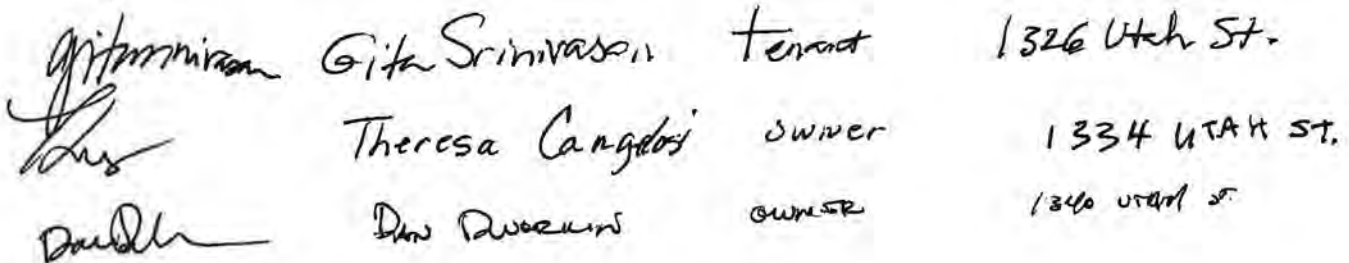 Gita Srinivasan tenant 1326 Utah St.
Theresa Cangelosi owner 1334 UTAH ST.
DAN DWORKIN OWNER 1340 UTAH ST